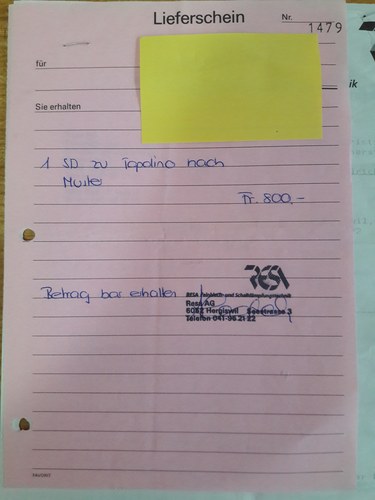 Lieferschein
Nr. 1479
für
Sie erhalten
1 SD zu Topolino nach
Muster
Fr. 800.-
RESA
Betrag bar erhalten
Resa AG
6052 Hergiswil Seestrasse 3
Telefon 041-95 21 22
ik